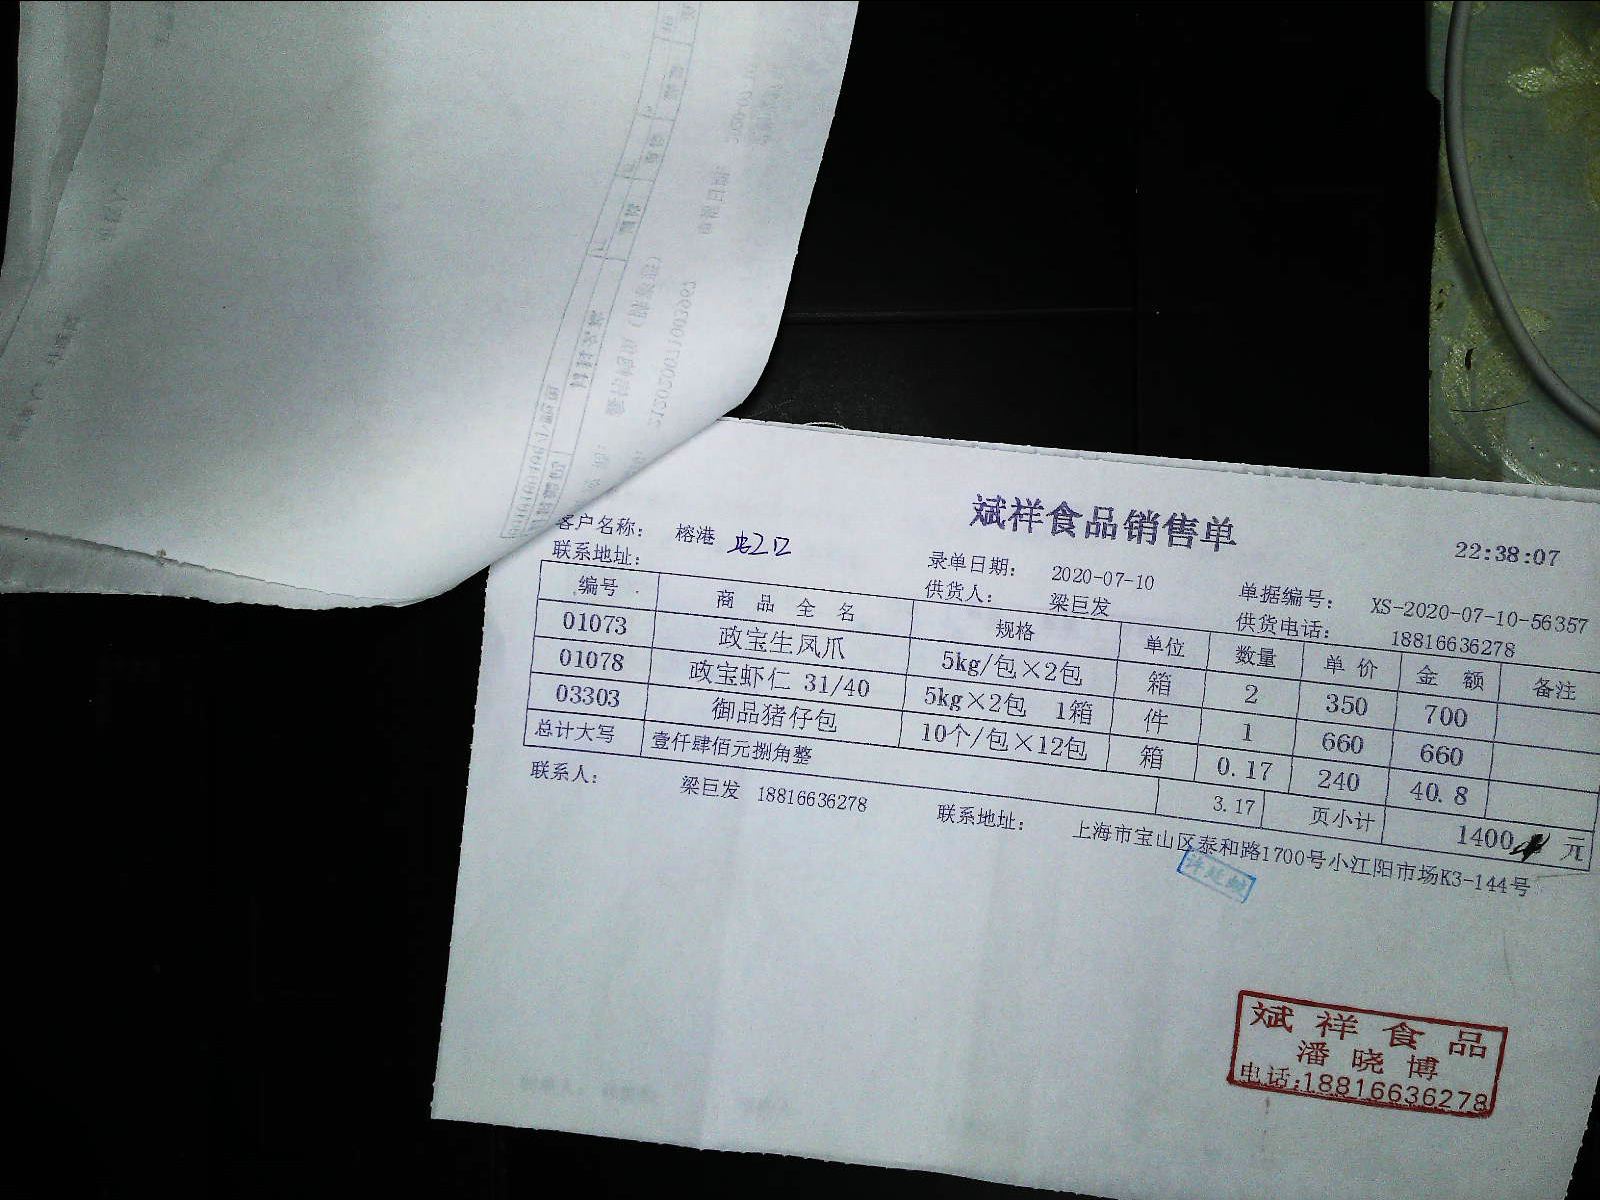 斌祥食品销售单
22:38:07
客户名称: 榕港 录单日期: 2020-07-10 单据编号: XS-2020-07-10-56357
联系地址: 供货人: 梁巨发 供货电话: 18816636278
编号 商品全名 规格 单位 数量 单价 金额 备注
01073 政宝生凤爪 5kg/包×2包 箱 2 350 700
01078 政宝虾仁 31/40 5kg×2包 1箱 件 1 660 660
03303 御品猪仔包 10个/包×12包 箱 0.17 240 40.8
总计大写 壹仟肆佰元捌角整 3.17 页小计 1400 元
联系人: 梁巨发 18816636278 联系地址: 上海市宝山区泰和路1700号小江阳市场K3-144号
斌祥食品
潘晓博
电话:18816636278